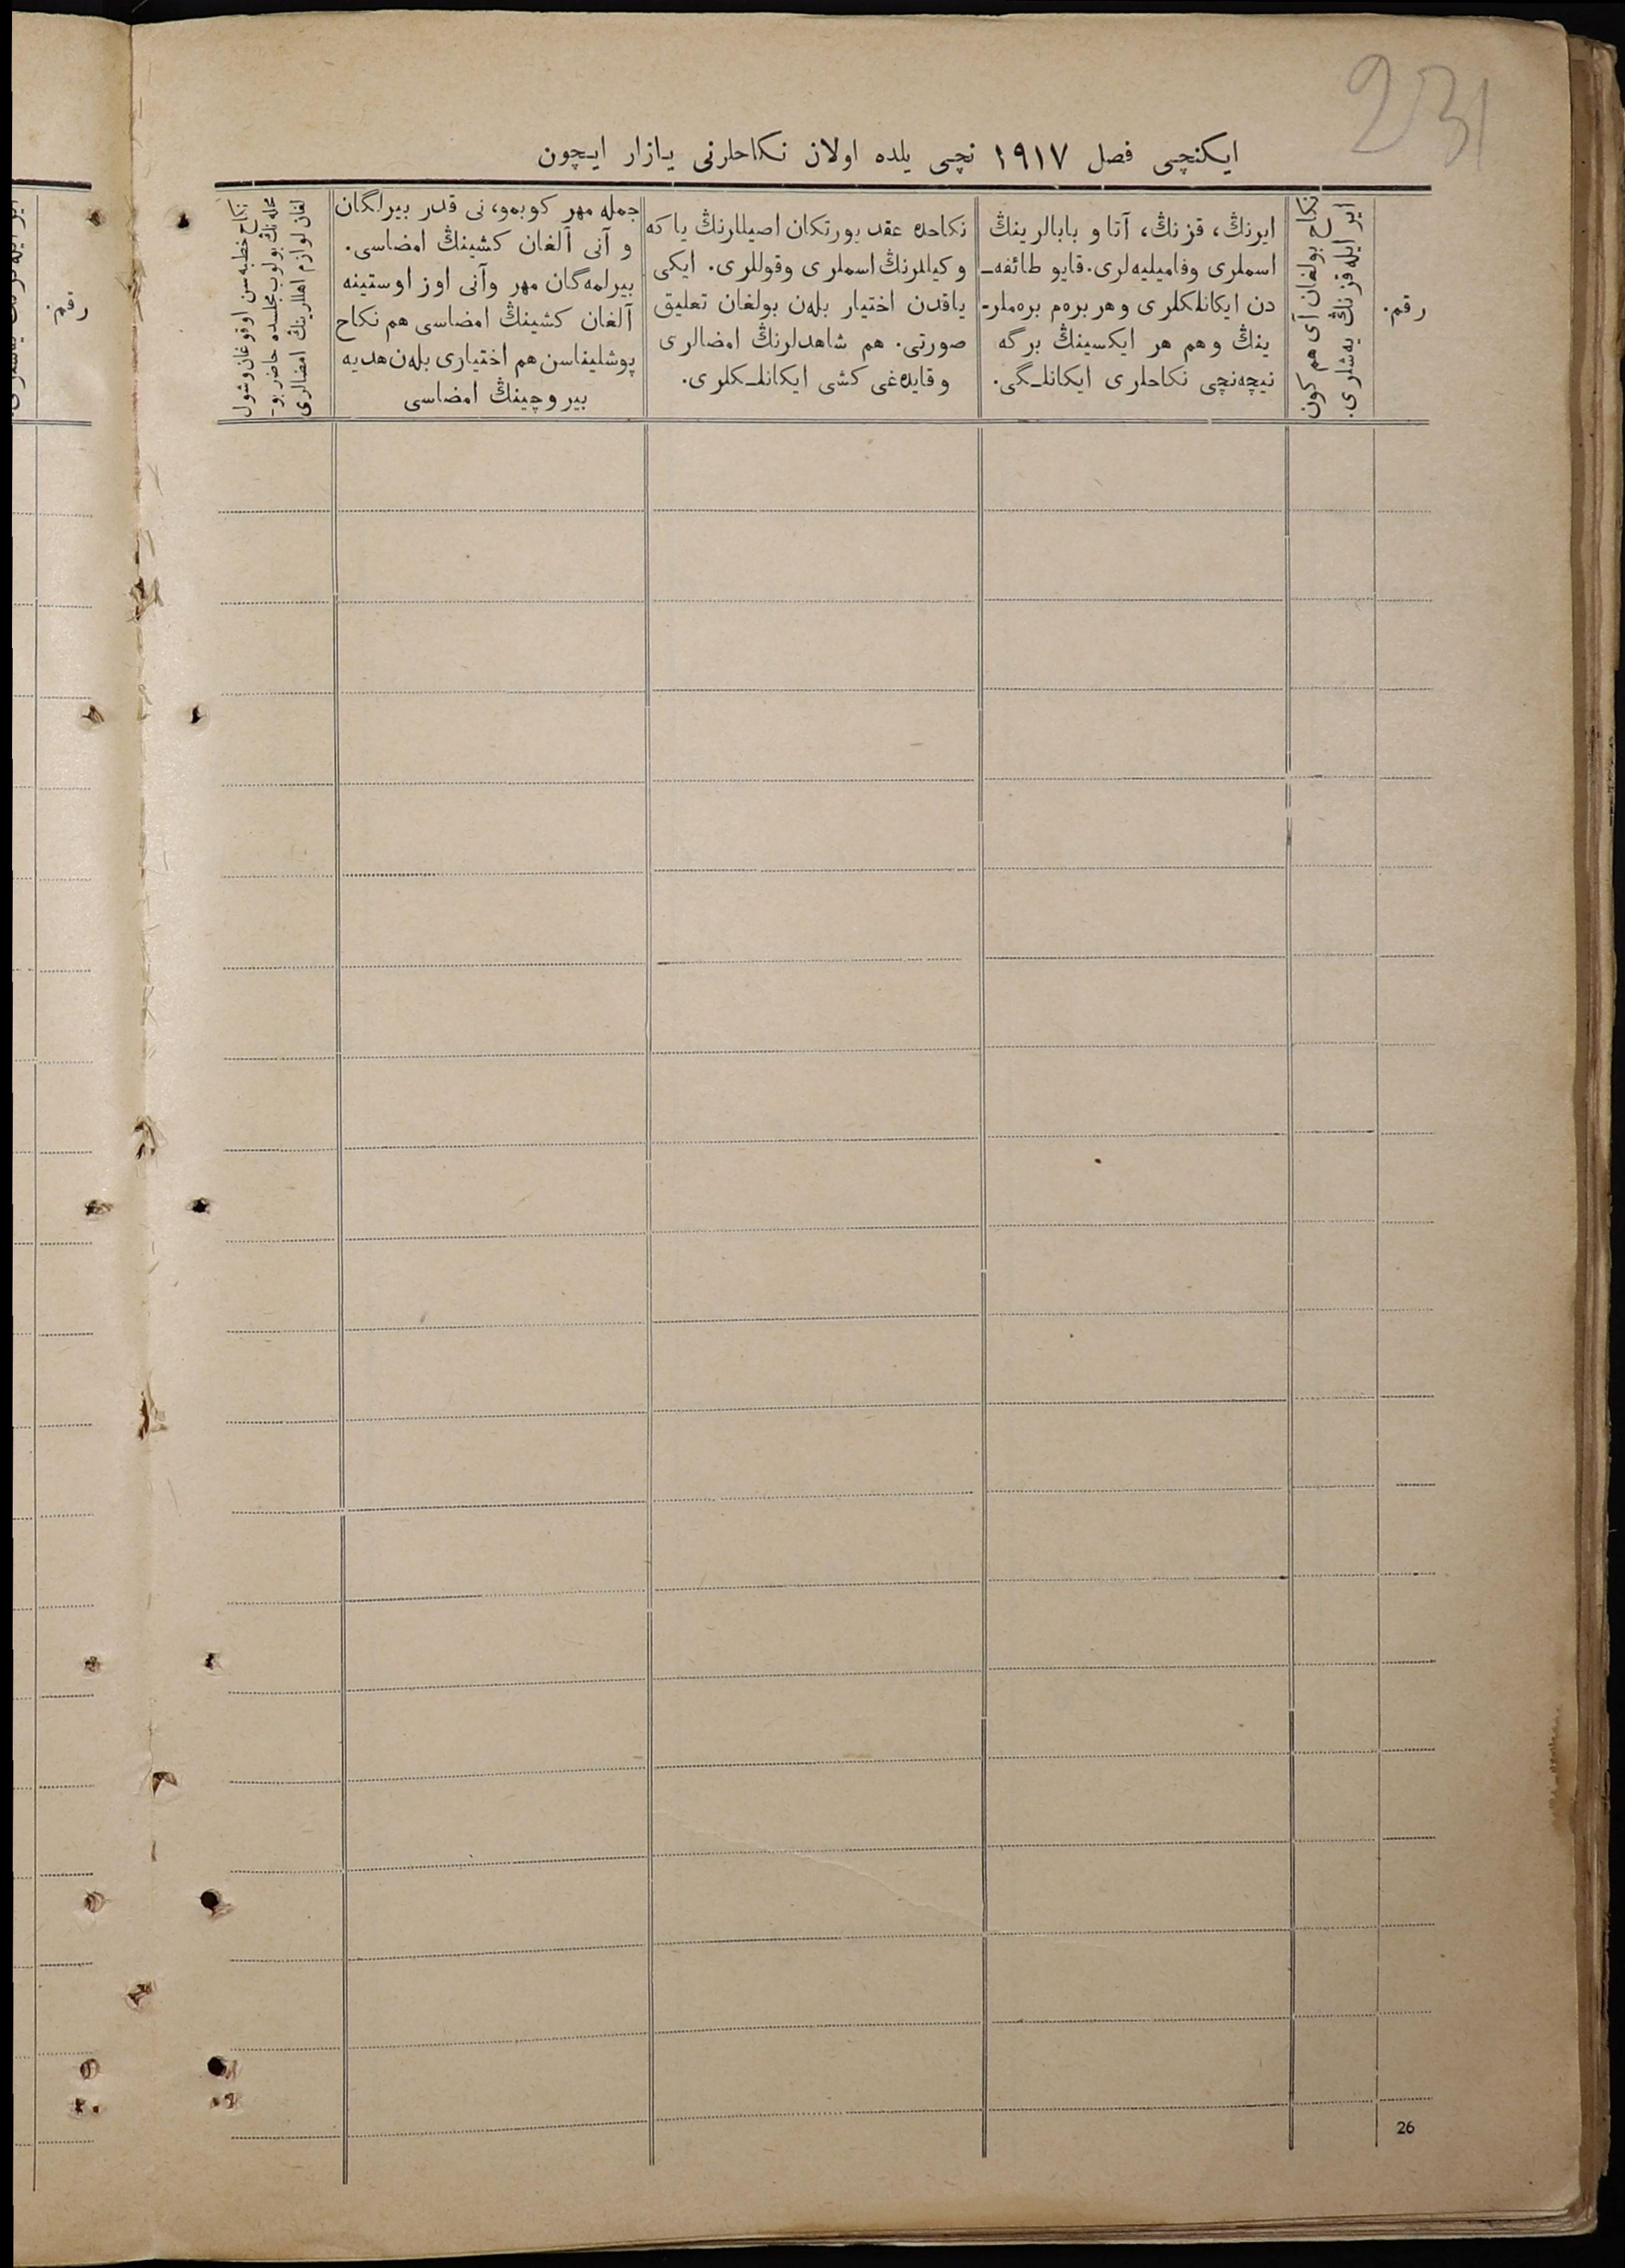 231
ایکنچی فصل ١٩١٧ نچی یلده اولان نکاحلرنی یازار ایچون
رقم.
نکاح بولغان آی هم کون
ایر ایله قزنڭ یەشلری.
ایرنڭ، قزنڭ، آتا و بابالرینڭ
اسملری وفامیلیەلری. قایو طائفەـ
دن ایکانلکلری وهر برەم برەملرـ
ینڭ وهم هر ایکسینڭ برگە
نیچەنچی نکاحلری ایکانلـگی.
نکاحدە عقد یورتکان اصیللرنڭ یاکە
وکیللرنڭ اسملری وقوللری. ایکی
یاقدن اختیار بلەن بولغان تعلیق
صورتی. هم شاهدلرنڭ امضالری
وقایدەغی کشی ایکانلـکلری.
جملە مهر کوبمو، نی قدر بیرلگان
و آنی آلغان کشینڭ امضاسی.
بیرلمەگان مهر وآنی اوز اوستینە
آلغان کشینڭ امضاسی هم نکاح
پوشلیناسن هم اختیاری بلەن هدیە
بیروچینڭ امضاسی
نکاح خطبەسن اوقوغان وشول
محلەنڭ بولوب مجلسدە حاضر بوـ
لغان لوازم اهللرینڭ امضالری
رقم.
26